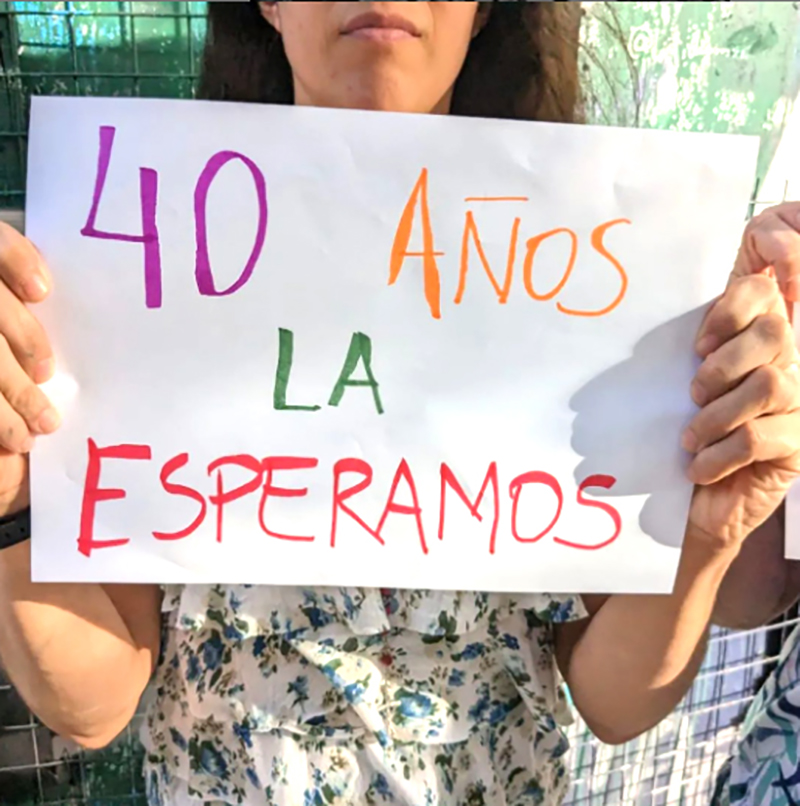 40 AÑOS
LA
ESPERAMOS